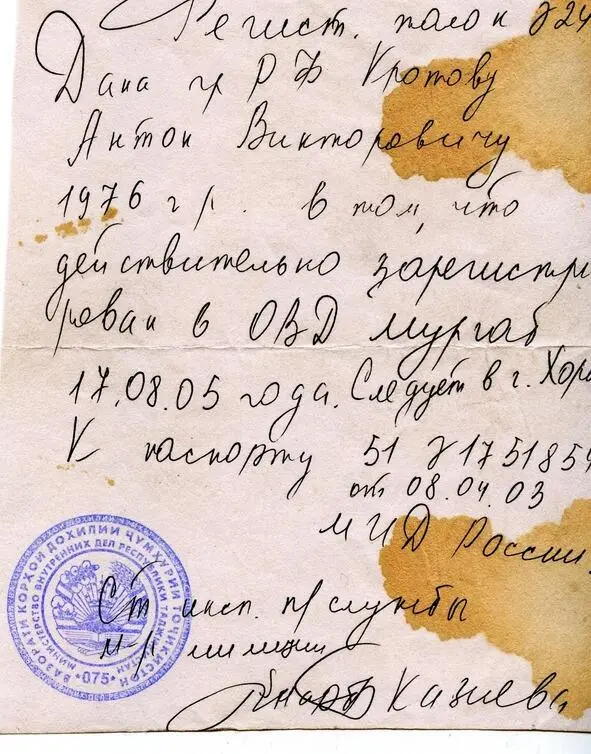 Регист. талон №24
Дана гр РФ Кротову
Антон Викторовичу
1976 г/р. в том, что
действительно зарегистри
рован в ОВД Мургаб
17.08.05 года. Следует в г. Хоро
К паспорту 51 №1751854
от 08.04.03
МИД России.
Ст инсп. п/службы
м-р милиции
Казиева
ВАЗОРАТИ КОРҲОИ ДОХИЛИИ ҶУМҲУРИИ ТОҶИКИСТОН
МИНИСТЕРСТВО ВНУТРЕННИХ ДЕЛ РЕСПУБЛИКИ ТАДЖИКИСТАН
*075*